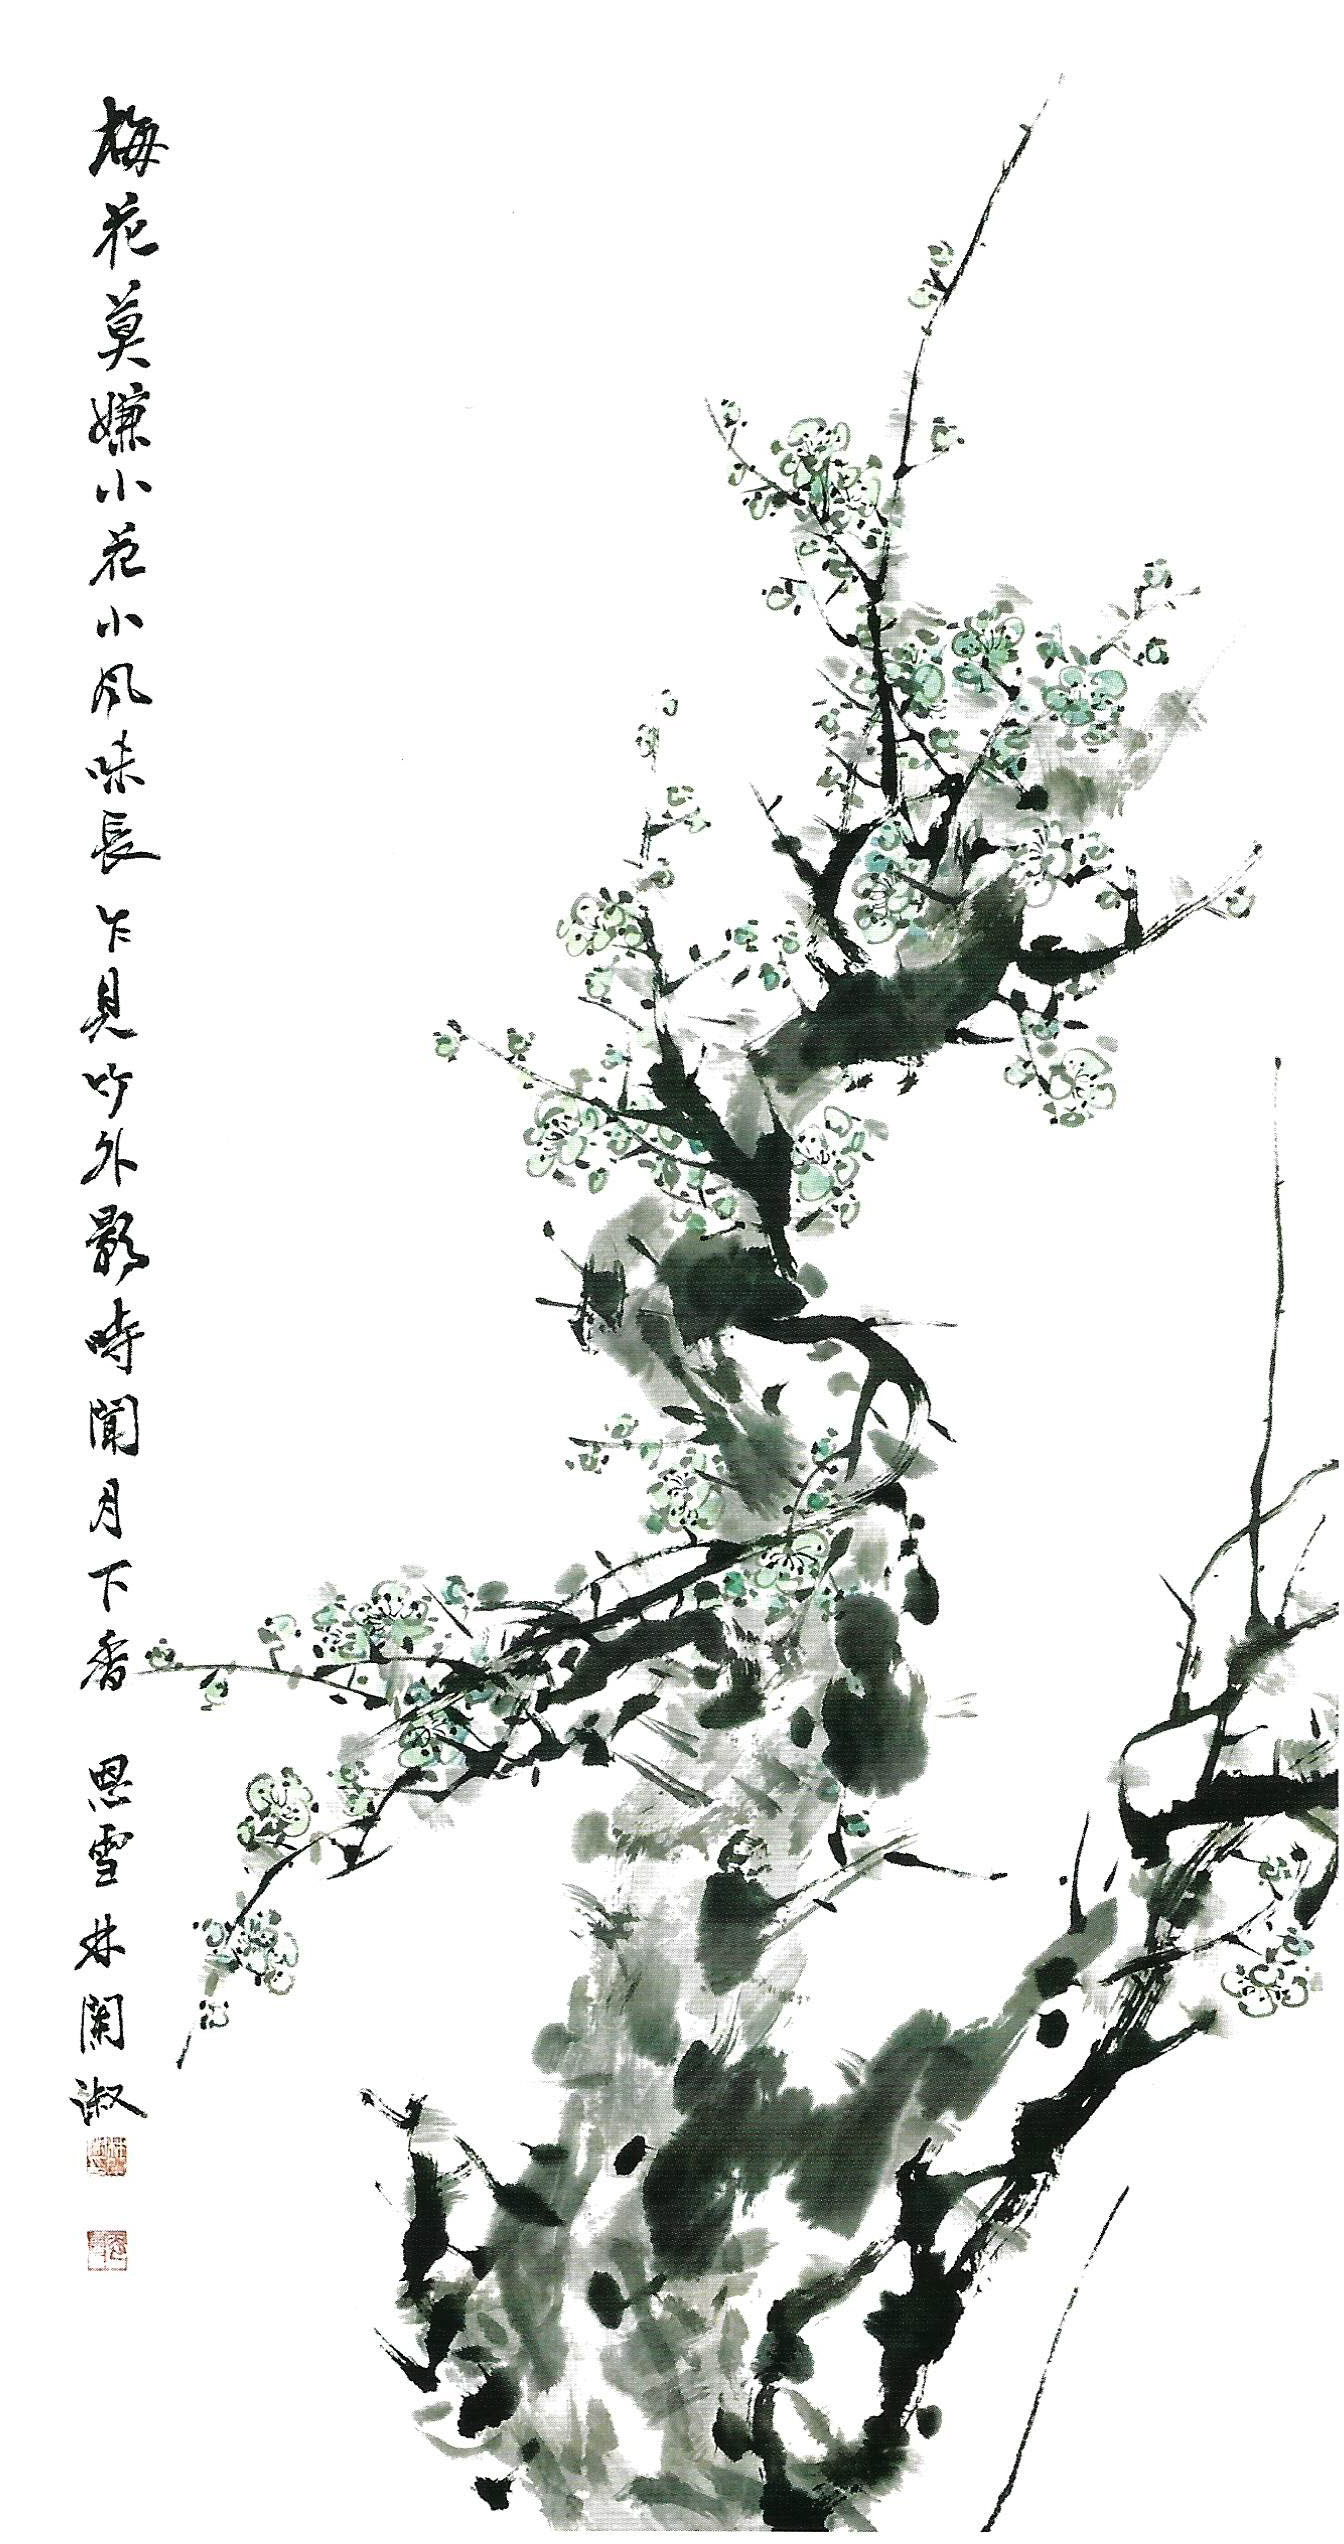 梅花莫嫌小花小風味長乍見竹外影時聞月下香 恩雪 林閑淑